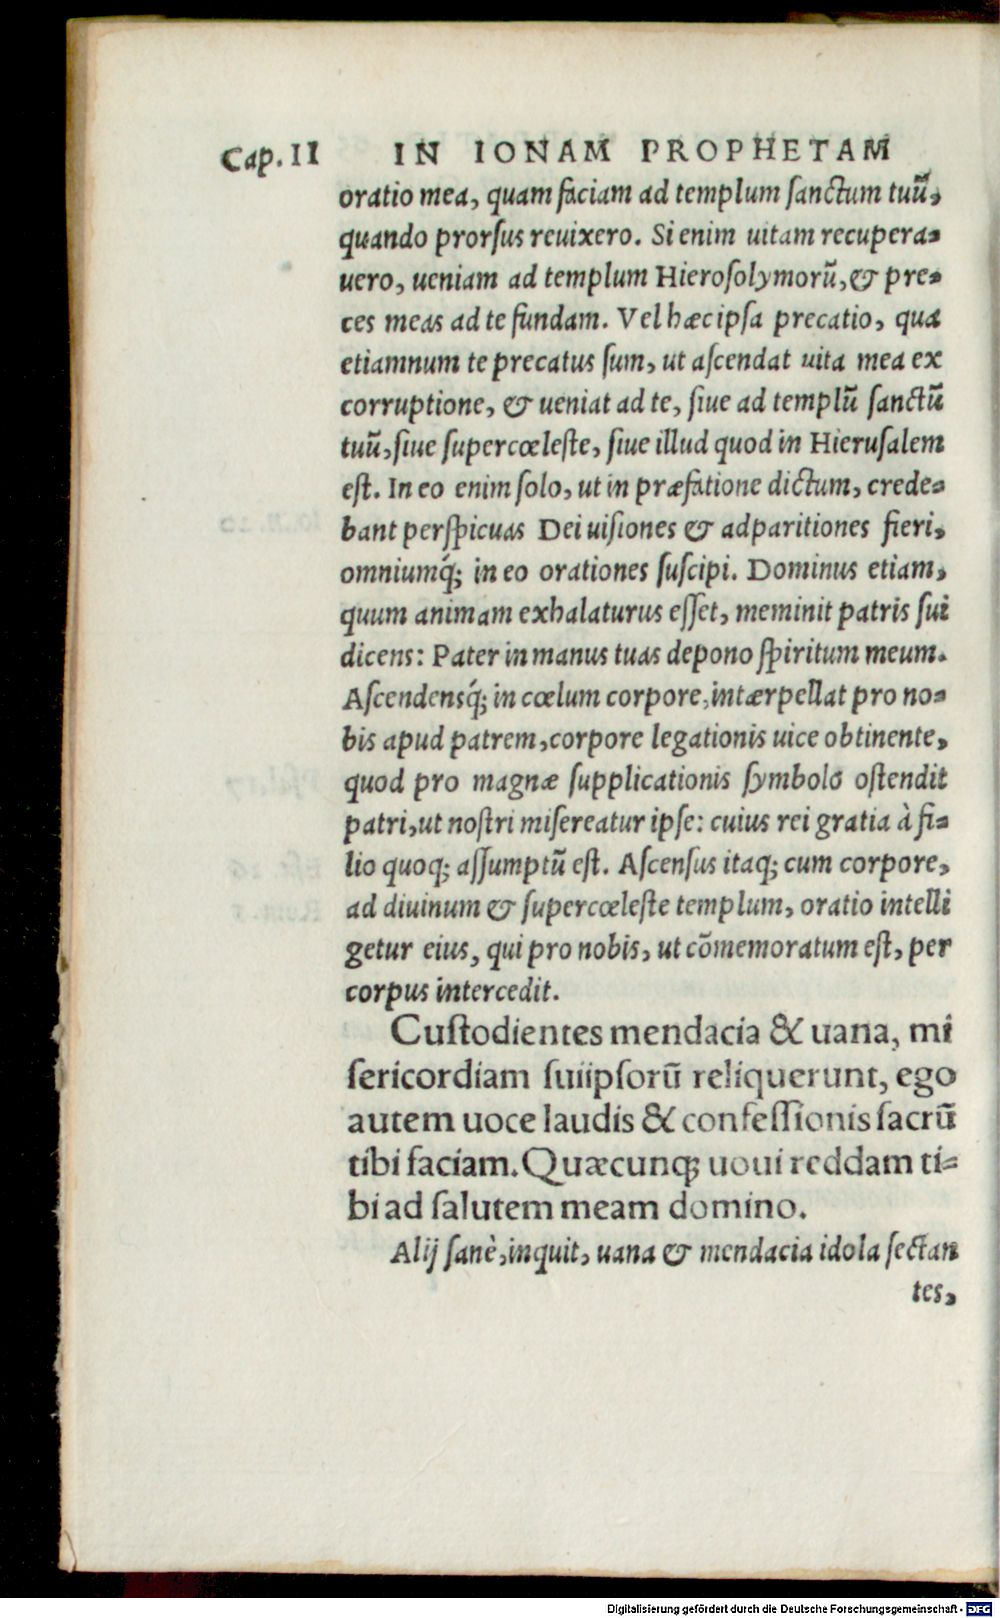 Cap. II IN IONAM PROPHETAM
oratio mea, quam faciam ad templum ſanctum tuũ,
quando prorſus reuixero. Si enim uitam recupera-
uero, ueniam ad templum Hieroſolymorũ, & pre-
ces meas ad te fundam. Vel hæc ipſa precatio, qua
etiamnum te precatus ſum, ut aſcendat uita mea ex
corruptione, & ueniat ad te, ſiue ad templũ ſanctũ
tuũ, ſiue ſupercœleſte, ſiue illud quod in Hieruſalem
eſt. In eo enim ſolo, ut in præfatione dictum, crede-
bant perſpicuas Dei uiſiones & adparitiones fieri,
omniumq́; in eo orationes ſuſcipi. Dominus etiam,
quum animam exhalaturus eſſet, meminit patris ſui
dicens: Pater in manus tuas depono ſpiritum meum.
Aſcendensq́; in cœlum corpore, intærpellat pro no-
bis apud patrem, corpore legationis uice obtinente,
quod pro magnæ ſupplicationis ſymbolo oſtendit
patri, ut noſtri miſereatur ipſe: cuius rei gratia à fi-
lio quoq; aſſumptũ eſt. Aſcenſus itaq; cum corpore,
ad diuinum & ſupercœleſte templum, oratio intelli
getur eius, qui pro nobis, ut cõmemoratum eſt, per
corpus intercedit.
Cuſtodientes mendacia & uana, mi
ſericordiam ſuiipſorũ reliquerunt, ego
autem uoce laudis & confeſſionis ſacrũ
tibi faciam. Quæcunq; uoui reddam ti-
bi ad ſalutem meam domino.
Alij ſanè, inquit, uana & mendacia idola ſectan
tes,
Digitalisierung gefördert durch die Deutsche Forschungsgemeinschaft - DFG